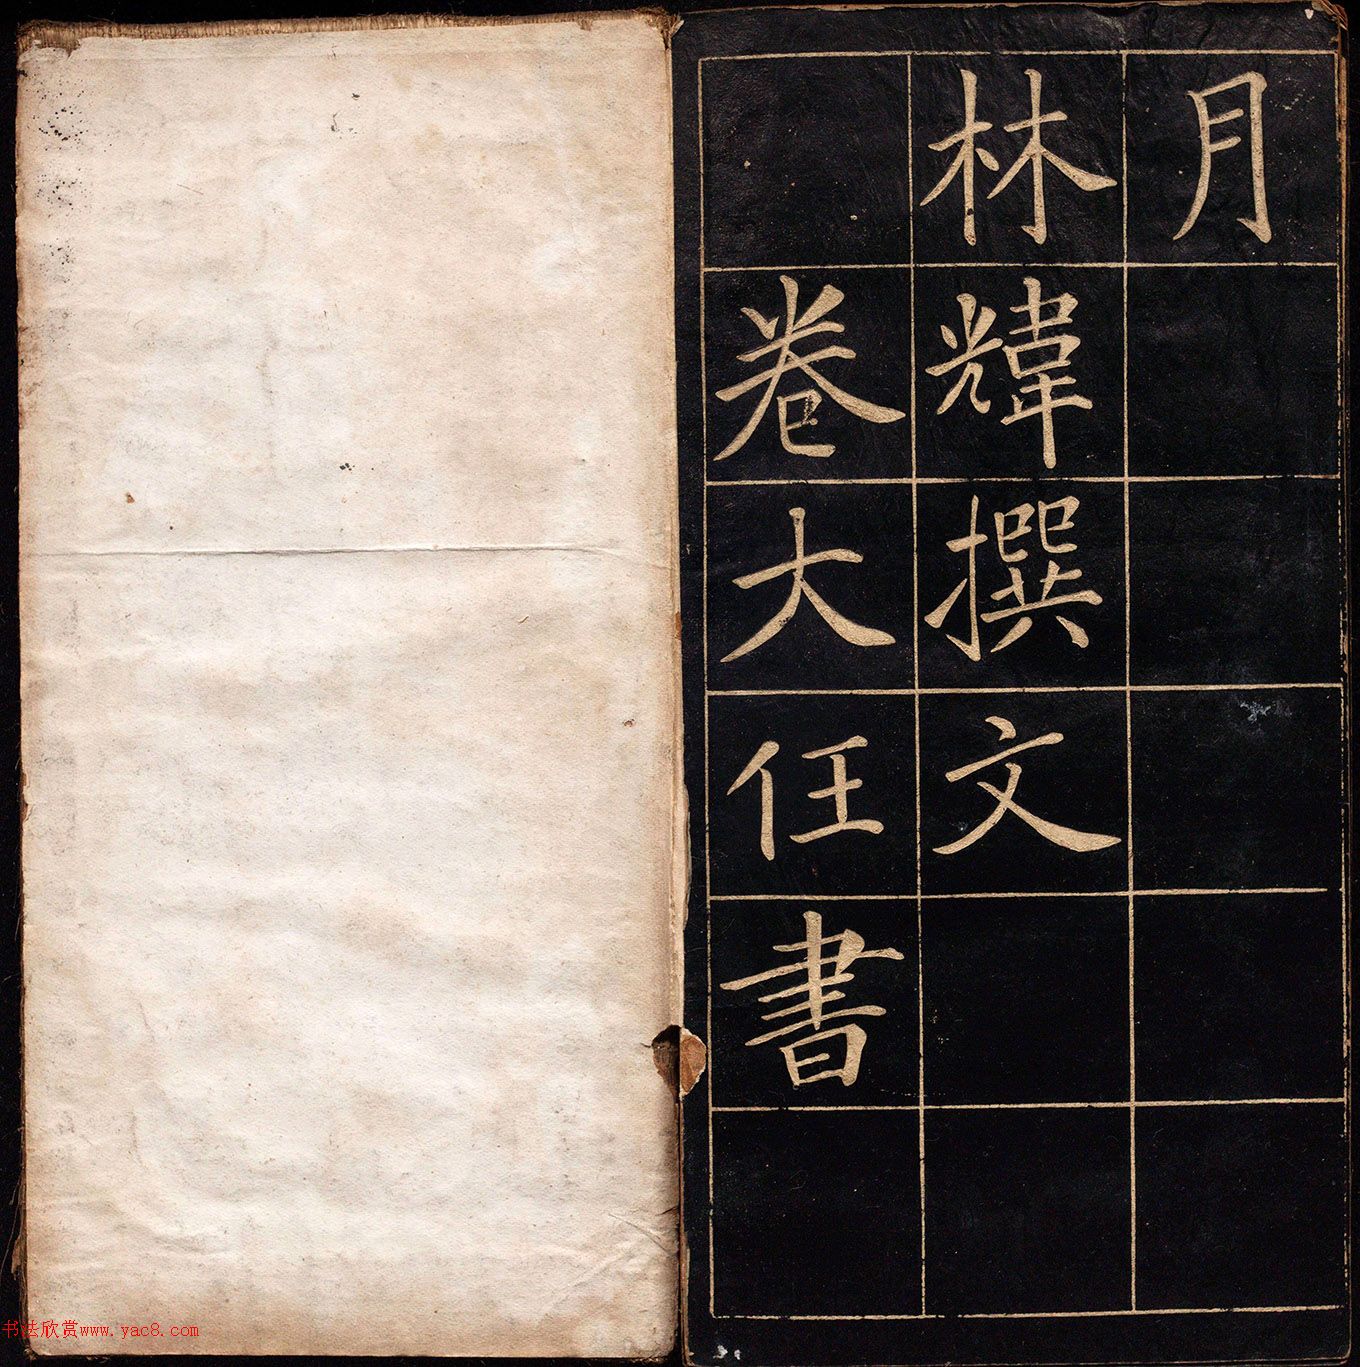 月
林煒撰文
卷大任書
书法欣赏www.yac8.com